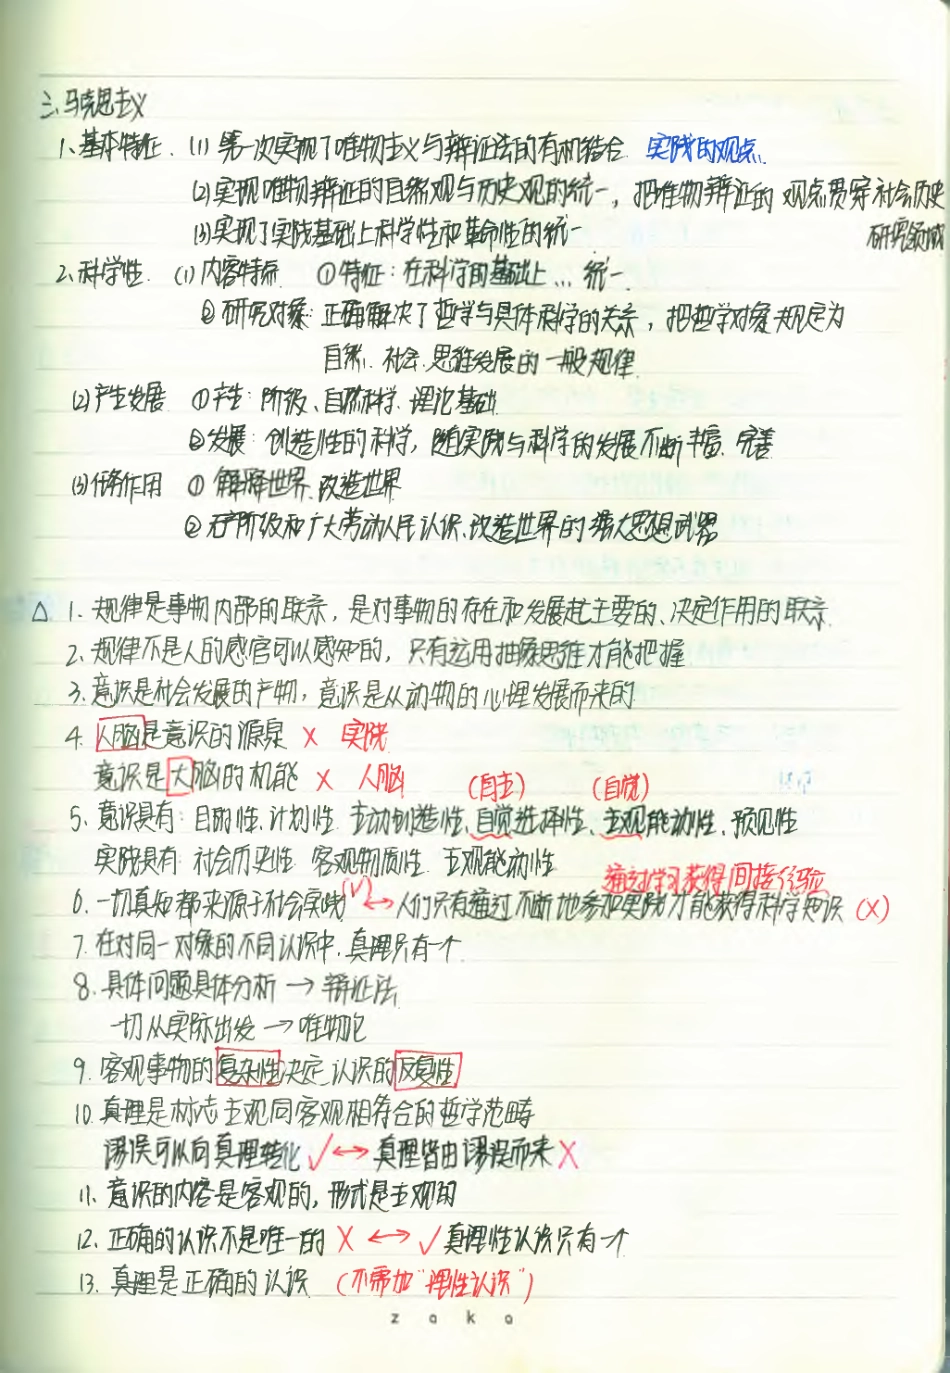 三、马克思主义
1、基本特征. (1) 第一次实现了唯物主义与辩证法的有机结合 实践的观点.
(2) 实现唯物辩证的自然观与历史观的统一，把唯物辩证的观点贯穿社会历史
(3)实现了实践基础上科学性和革命性的统一 研究领域
2、科学性. (1) 内容特点 ①特征：在科学的基础上…统一
②研究对象：正确解决了哲学与具体科学的关系，把哲学对象规定为
自然. 社会. 思维发展的一般规律.
(2)产生发展 ①产生：阶级、自然科学. 理论基础.
②发展：创造性的科学，随实践与科学的发展不断丰富. 完善
(3)任务作用 ① 解释世界. 改造世界
② 无产阶级和广大劳动人民认识、改造世界的强大思想武器
△ 1. 规律是事物内部的联系，是对事物的存在和发展起主要的、决定作用的联系.
2、规律不是人的感官可以感知的，只有运用抽象思维才能把握
3. 意识是社会发展的产物，意识是从动物的心理发展而来的
4. 人脑是意识的源泉 X 实践
意识是大脑的机能 X 人脑 (自主) (自觉)
5、意识具有：目的性、计划性. 主动创造性、自觉选择性、主观能动性、预见性
实践具有 社会历史性. 客观物质性. 主观能动性 通过学习获得间接经验
6. 一切真知都来源于社会实践(√)↔人们只有通过不断地参加实践才能获得科学知识 (X)
7. 在对同一对象的不同认识中，真理只有一个
8. 具体问题具体分析 → 辩证法
一切从实际出发 → 唯物论
9. 客观事物的复杂性决定认识的反复性
10. 真理是标志主观同客观相符合的哲学范畴
谬误可以向真理转化 √ ↔ 真理皆由谬误而来 X
11. 意识的内容是客观的，形式是主观的
12. 正确的认识不是唯一的 X ↔ √ 真理性认识只有一个
13. 真理是正确的认识 (不需加"理性认识")
zaka